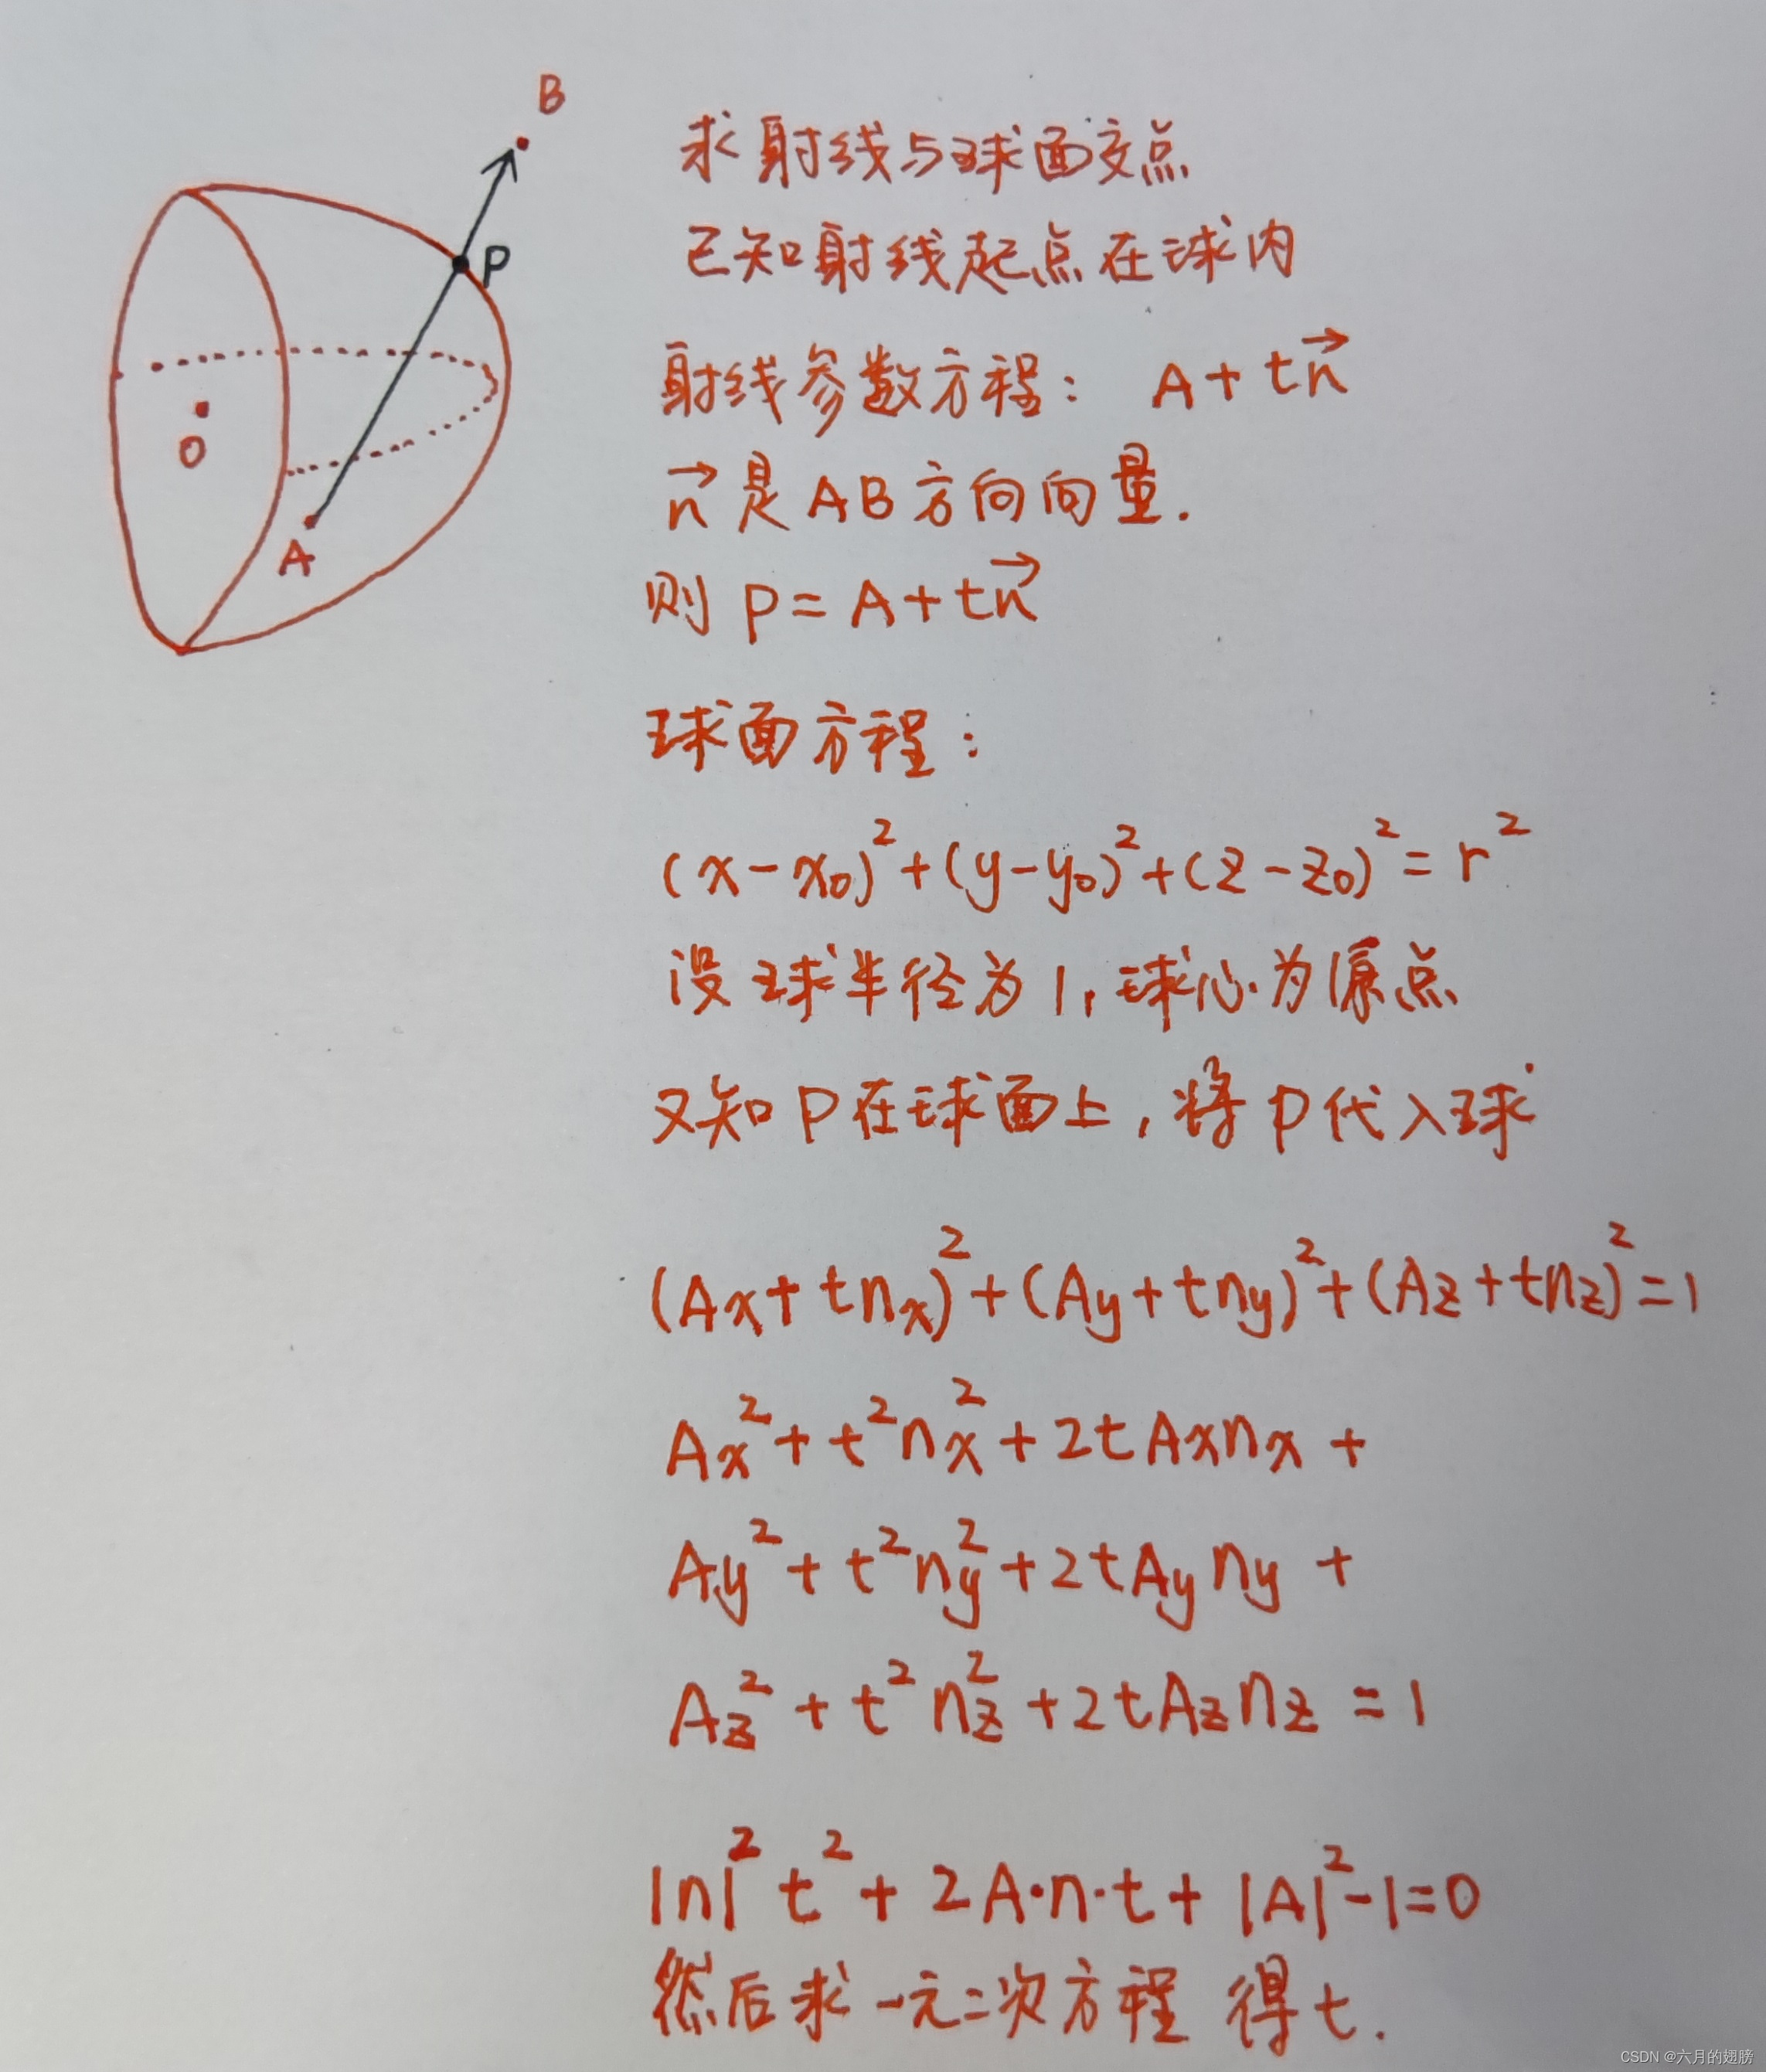 B
求射线与球面交点
P
已知射线起点在球内
射线参数方程： A+tn⃗
O
n⃗ 是AB方向向量.
A
则 P=A+tn⃗
球面方程：
(x-x₀)²+(y-y₀)²+(z-z₀)²=r²
设球半径为1,球心为原点
又知P在球面上,将P代入球
(Ax+tnx)²+(Ay+tny)²+(Az+tnz)²=1
Ax²+t²nx²+2tAxnx+
Ay²+t²ny²+2tAyny+
Az²+t²nz²+2tAznz=1
|n|²t²+2A·n·t+|A|²-1=0
然后求一元二次方程 得t.
CSDN @六月的翅膀